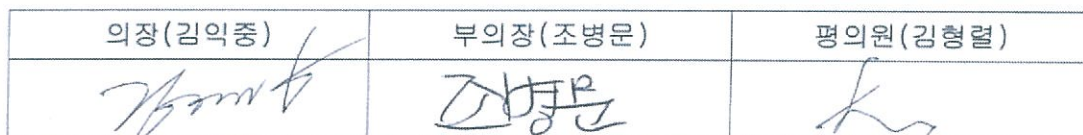 의장(김익중) 부의장(조병문) 평의원(김형렬)
조병문